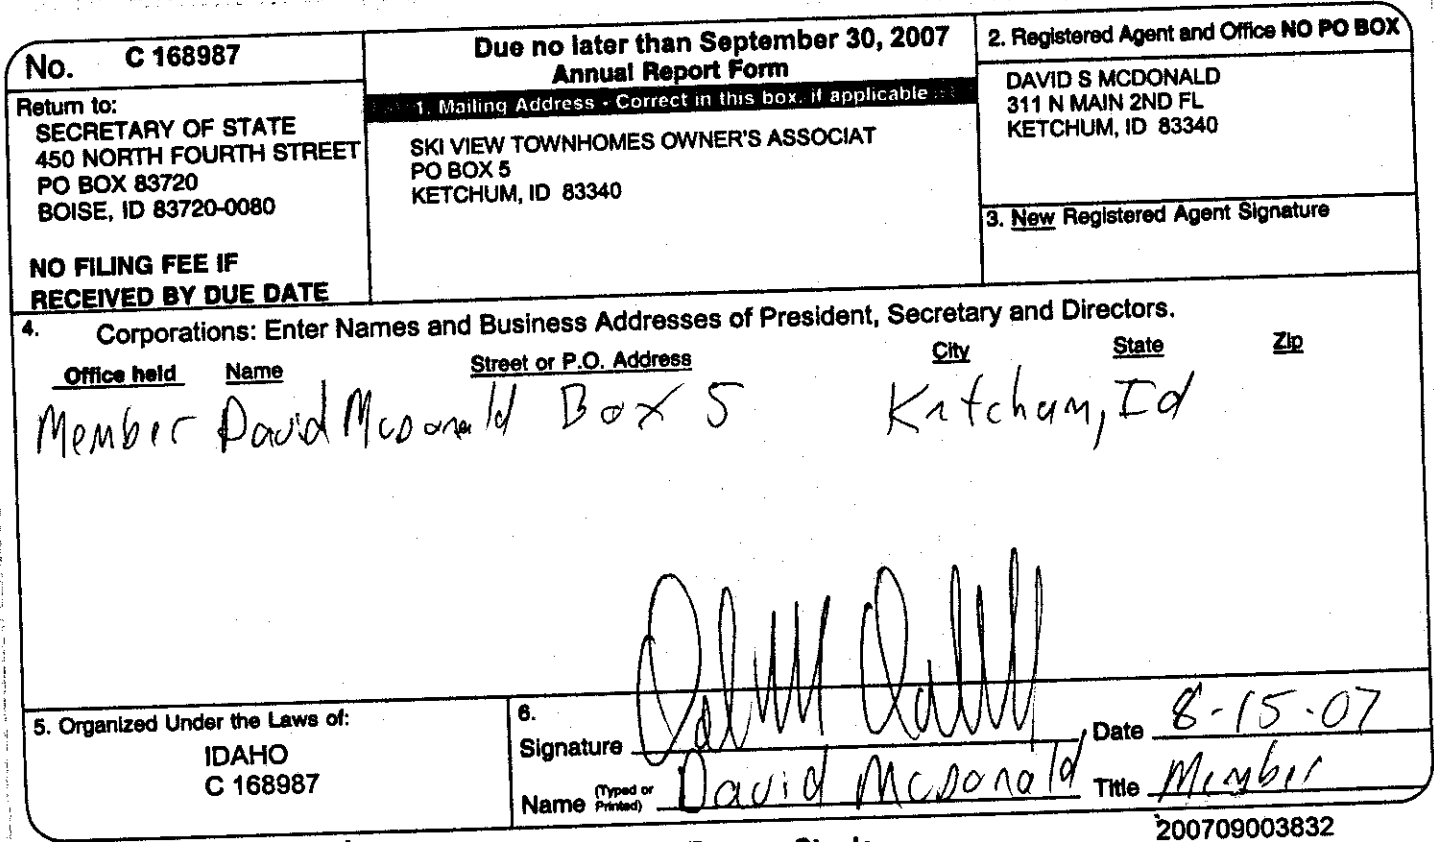 No. C 168987
Return to:
SECRETARY OF STATE
450 NORTH FOURTH STREET
PO BOX 83720
BOISE, ID 83720-0080
NO FILING FEE IF
RECEIVED BY DUE DATE
Due no later than September 30, 2007
Annual Report Form
1. Mailing Address - Correct in this box, if applicable
SKI VIEW TOWNHOMES OWNER'S ASSOCIAT
PO BOX 5
KETCHUM, ID 83340
2. Registered Agent and Office NO PO BOX
DAVID S MCDONALD
311 N MAIN 2ND FL
KETCHUM, ID 83340
3. New Registered Agent Signature
4. Corporations: Enter Names and Business Addresses of President, Secretary and Directors.
Office held Name Street or P.O. Address City State Zip
Member David McDonald Box 5 Ketchum, Id
5. Organized Under the Laws of:
IDAHO
C 168987
6.
Signature Date 8-15-07
Name (Typed or Printed) David McDonald Title Member
200709003832